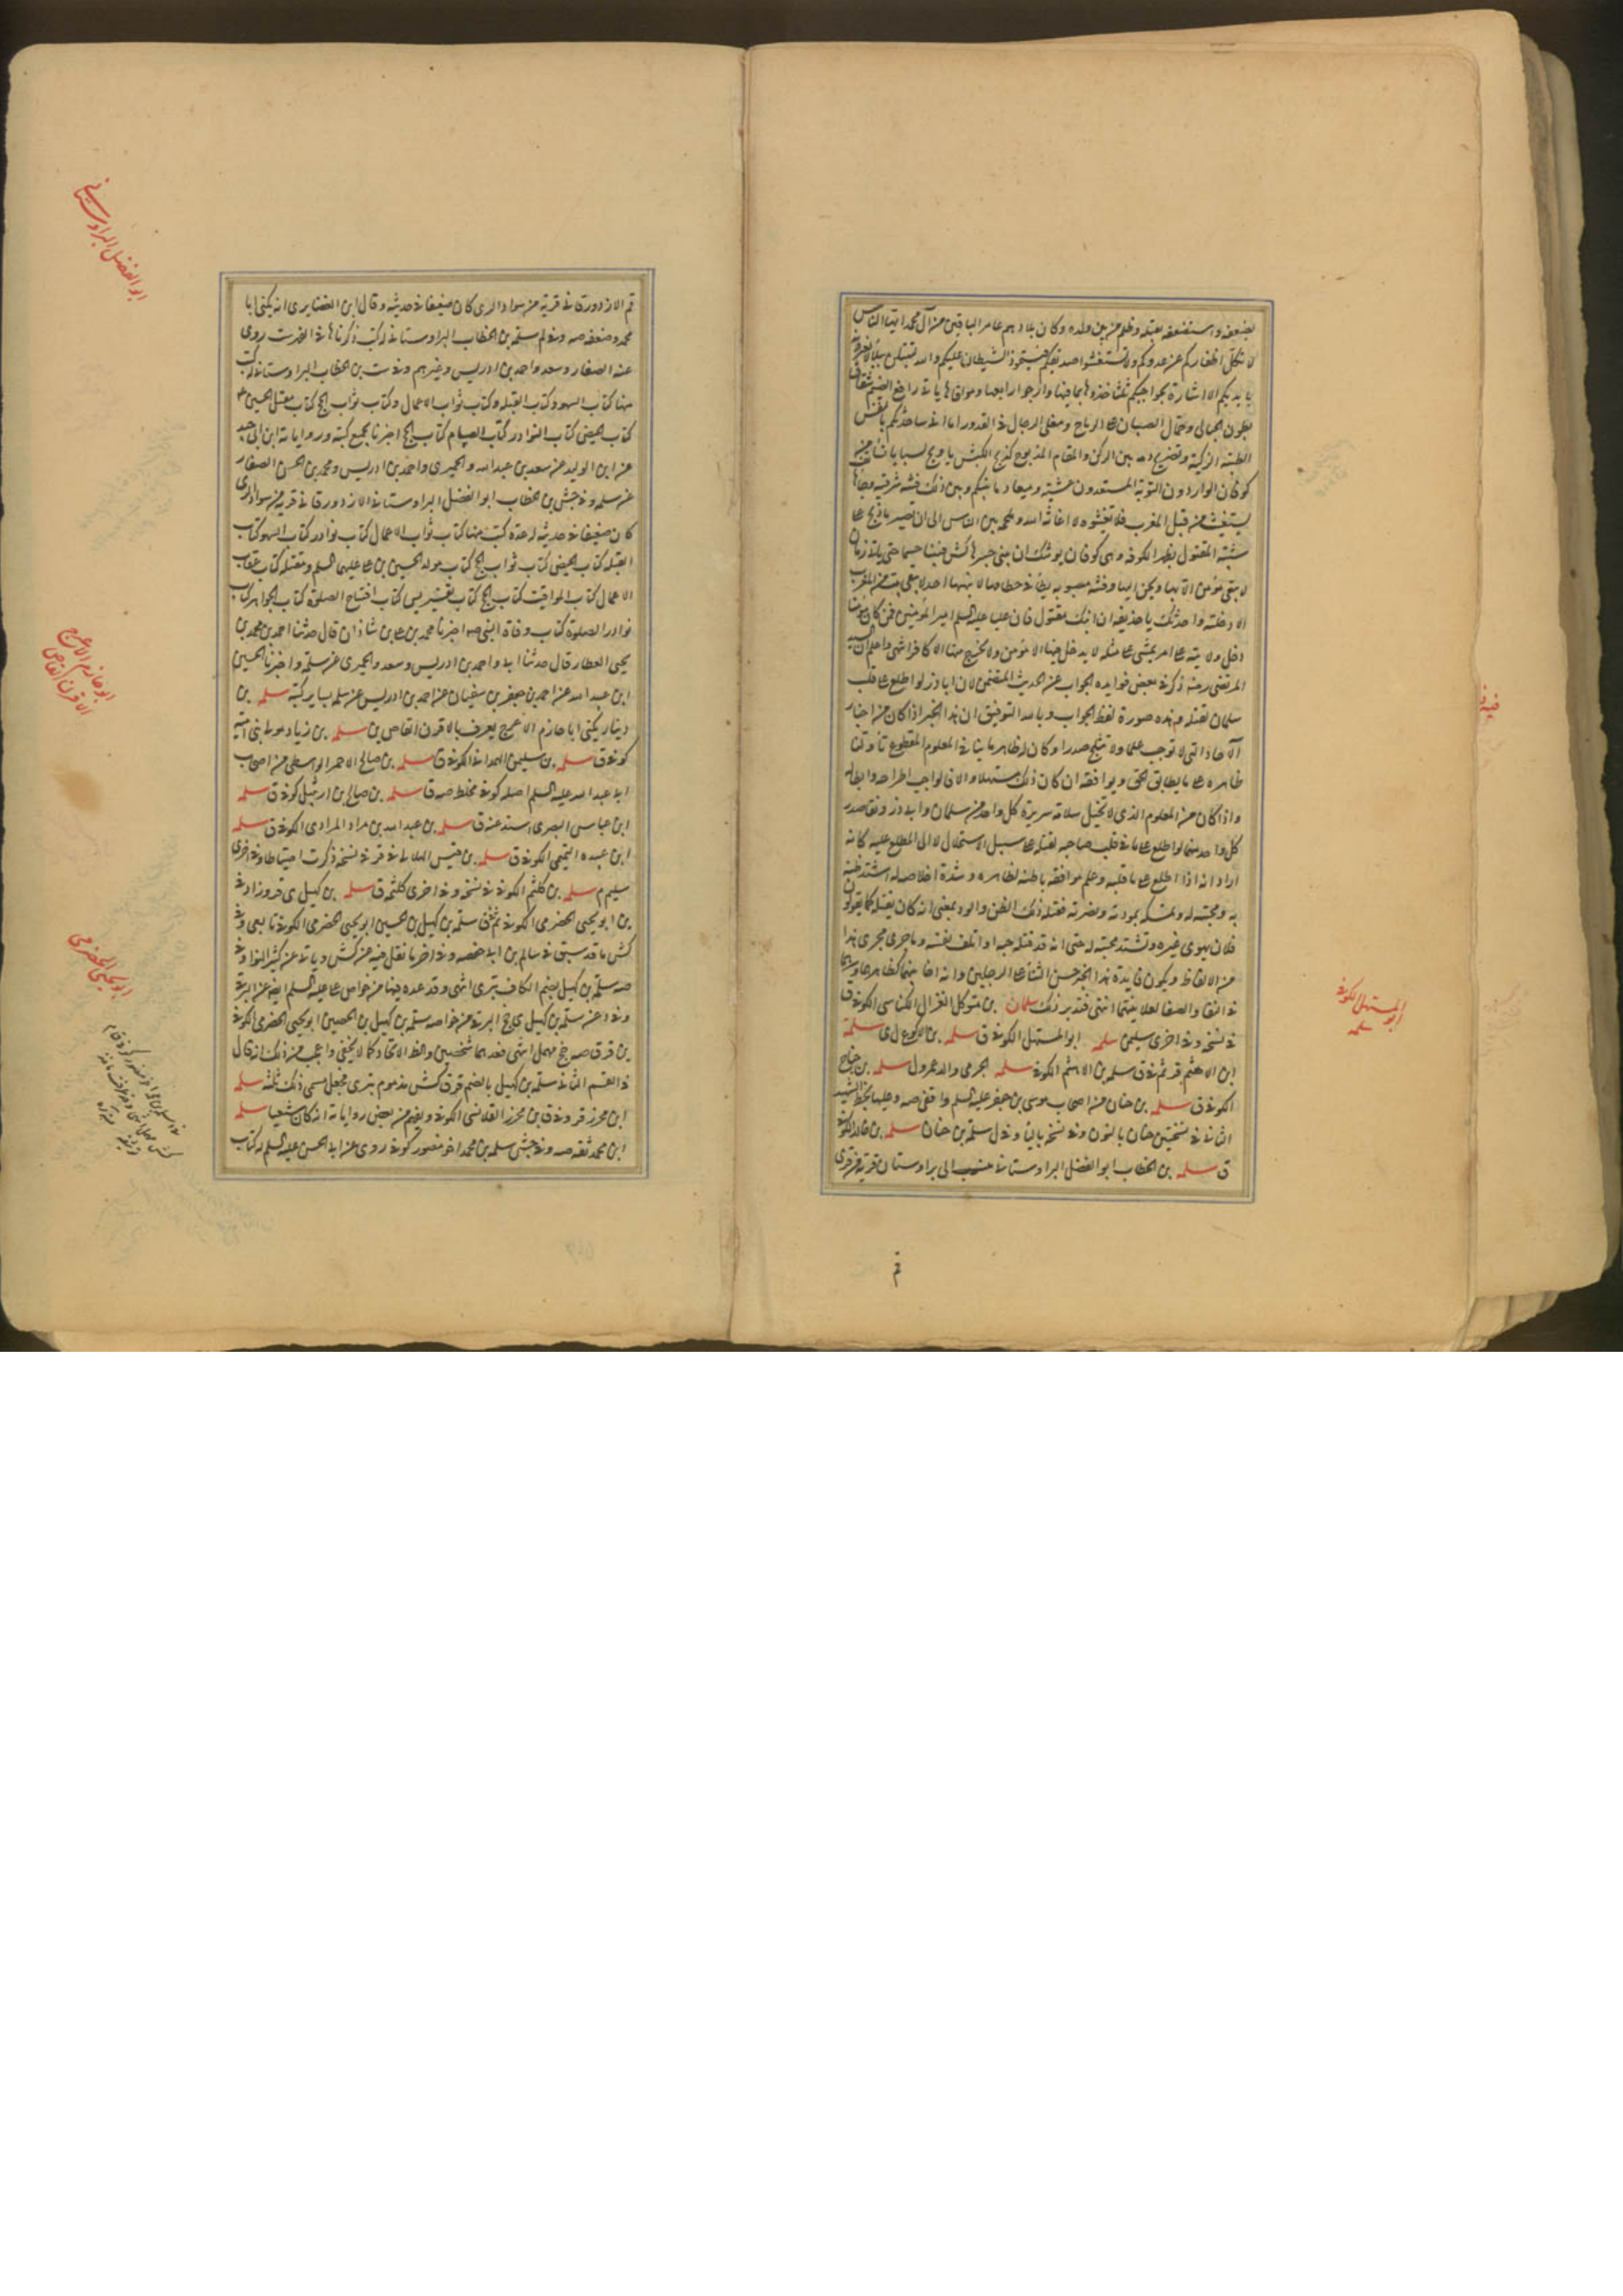 بضعفه واستضعفه بقتله وظلم من بين ولده وكان بلادهم عامر الباقين من آل محمد ايها الناس
لا تكل اظفاركم عن عدوكم ولا تستغشوا صديقكم فيستحوذ الشيطان عليكم والله لتبتلن ببلاء
بايديكم الا اشارة بحواجبكم ثلثا خذوها بما فيها وارجوا رابعها وموافاها ياتي رافع الضيم شقاق
بطون الحبالى وحمال الصبيان على الرماح ومغلى الرجال في القدور اما اني ساحدثكم بالنفس
الطيبة الزكية وتضريج دمه بين الركن والمقام المذبوح كذبح الكبش يا ويح لسبايا نساء من
كوفان الواردون الثوية المستعدون عشية وميعاد ما بينكم وبين ذلك فتنة شرقية وجاء
يستغيث من قبل المغرب فلا تغيثوه لا اغاثه الله وملحمة بين الناس الى ان تصير ما ذبح على
شبيه المقتول بظهر الكوفة وهي كوفان يوشك ان يبنى جسرها حتى ياتي زمان
لا يبقى مؤمن الا بها او يحن اليها وفتنة مصبوبة يطأ في خطامها لا ينهيها احد لا يبقى بيت من العرب
الا دخلته واحدثك يا حذيفة ان ابنك مقتول فان عليا عليه السلم امير المؤمنين فمن كان مؤمنا
دخل ولايته على امر يمسى على مثله لا يدخل فيها الا مؤمن ولا يخرج منها الا كافر انتهى واعلم ان السيد
المرتضى ره ذكر في بعض فوايده الجواب عن الحديث المتضمن لان اباذر لو اطلع على قلب
سلمان لقتله وهذه صورة لفظ الجواب وبالله التوفيق ان هذا الخبر اذا كان من اخبار
الآحاد التي لا توجب علما ولا تثلج صدرا وكان له ظاهر ينافي المعلوم المقطوع تأولنا
ظاهره على ما يطابق الحق ويوافقه ان كان ذلك مستسهلا والا فالواجب اطراحه وابطاله
واذا كان من المعلوم الذي لا يحيل سلامة سريرة كل واحد من سلمان وابي ذر ونقاء صدر
كل واحد منهما لو اطلع على ما في قلب صاحبه لقتله على سبيل الاستحلال لا الى المطلع عليه كانه
اراد انه اذا اطلع على ما في قلبه وعلم موافقة باطنه لظاهره وشدة اخلاصه له اشتد ظنه
به ومحبته له وتمسكه بمودته ونصرته فقتله ذلك الظن والود بمعنى انه كاد يقتله كما يقولون
فلان يهوى غيره وتشتد محبته له حتى انه قد قتله حبه او اتلف نفسه وما جرى مجرى هذا
من الالفاظ ويكون فايدة هذا الخبر حسن الثناء على الرجلين وانه اخا بينهما
في النقا والصفا انتهى فتدبر ذلك سلمان بن متوكل الغزال الكناسي الكوفي ق
في نسخة وفي اخرى سليمن سلمه ابو المستهل الكوفي ق سلمه بن الاكوع ل ي سلمة
ابن الاهثم ق سلمة بن الاهثم الكوفي سلمه الجرمي والد عمرو ل سلمه بن جناح
الكوفي ق سلمه بن حنان من اصحاب موسى بن جعفر عليه السلم واقفي صه وعليها بخط الشهيد
الثاني في نسختين حنان بالنون وفي نسخة بالياء وفي ل سلمة بن حنان سلمه بن خالد الكوفي
ق سلمه بن الخطاب ابو الفضل البراوستاني منسوب الى براوستان قرية من قرى
قم
ابو المستهل الكوفي
سلمه
قم الازدورقاني قرية من سواد الري كان ضعيفا في حديثه وقال ابن الغضايري انه يكنى ابا
محمد وضعفه صه وفي لم سلمة بن الخطاب البراوستاني له كتب ذكرناها في الفهرست روى
عنه الصفار وسعد واحمد بن ادريس وغيرهم وفي ست بن الخطاب البراوستاني له كتب
منها كتاب السهو وكتاب القبلة وكتاب ثواب الاعمال وكتاب ثواب الحج كتاب مقتل الحسين ع
كتاب الحيض كتاب النوادر كتاب الصيام كتاب الحج اخبرنا بجميع كتبه ورواياته ابن ابي جيد
عن ابن الوليد عن سعد بن عبدالله والحميري واحمد بن ادريس ومحمد بن الحسن الصفار
عن سلمه وفي جش بن الخطاب ابو الفضل البراوستاني الازدورقاني قرية من سواد الري
كان ضعيفا في حديثه له عدة كتب منها كتاب ثواب الاعمال كتاب نوادر كتاب السهو كتاب
القبلة كتاب الحيض كتاب ثواب الحج كتاب مولد الحسين بن علي عليهما السلم ومقتله كتاب عقاب
الاعمال كتاب المواقيت كتاب الحج كتاب تفسير يس كتاب افتتاح الصلوة كتاب الجواهر كتاب
نوادر الصلوة كتاب وفاة النبي صه اخبرنا محمد بن علي بن شاذان قال حدثنا احمد بن محمد بن
يحيى العطار قال حدثنا ابي واحمد بن ادريس وسعد والحميري عن سلمة واخبرنا الحسين
ابن عبدالله عن احمد بن جعفر بن سفيان عن احمد بن ادريس عن سلمه بساير كتبه سلمه بن
دينار يكنى ابا حازم الاعرج يعرف بالاقرن القاص ين سلمه بن زياد مولى بني امية
كوفي ق سلمه بن سليمن الهمداني الكوفي ق سلمه بن صالح الاحمر الواسطي من اصحاب
ابي عبدالله عليه السلم اصله كوفي مخلط صه ق سلمه بن صالح بن ارتبيل كوفي ق سلمه
ابن عباس البصري اسند عنه ق سلمه بن عبدالله بن مراد المرادي الكوفي ق سلمه
ابن عبده التيمي الكوفي ق سلمه بن قيس الهلالي في ق في نسخة ذكرت احتياطا وفي اخرى
سليم م سلمه بن كلثم الكوفي في نسخة وفي اخرى كلثمه ق سلمه بن كهيل ي قر وزاد في
ين ابو يحيى الحضرمي الكوفي ثم في ق سلمة بن كهيل بن الحصين ابو يحيى الحضرمي الكوفي تابعي وفي
كش ما قد سبق في سالم بن ابي حفصه وفي اخر ما نقل فيه عن كش وياتي عنه في كثير النوا وفي
صه سلمة بن كهيل بضم الكاف بتري انتهى وقد عده فيها من خواص علي عليه السلم ايضا عن البرقي
وفي د عنه سلمة بن كهيل ي جخ البرقي من خواصه سلمة بن كهيل بن الحصين ابو يحيى الحضرمي الكوفي
ين قر ق صه جخ مهمل انتهى فعدهما شخصين والظ الاتحاد كما لا يخفى واعجب من ذلك انه قال
في القسم الثاني سلمة بن كهيل بالضم قر ق كش مذموم بتري فجعل مسمى ذلك ثلثه سلمه
ابن محرز قر وفي ق بن محرز القلانسي الكوفي ويفهم من بعض رواياته انه كان شيعيا سلمه
ابن محمد ثقه صه وفي جش سلمه بن محمد اخو منصور كوفي روى عن ابي الحسن عليه السلم له كتاب
ابو الفضل البراوستاني
ابو حازم الاعرج
الاقرن القاص
ابو يحيى الحضرمي